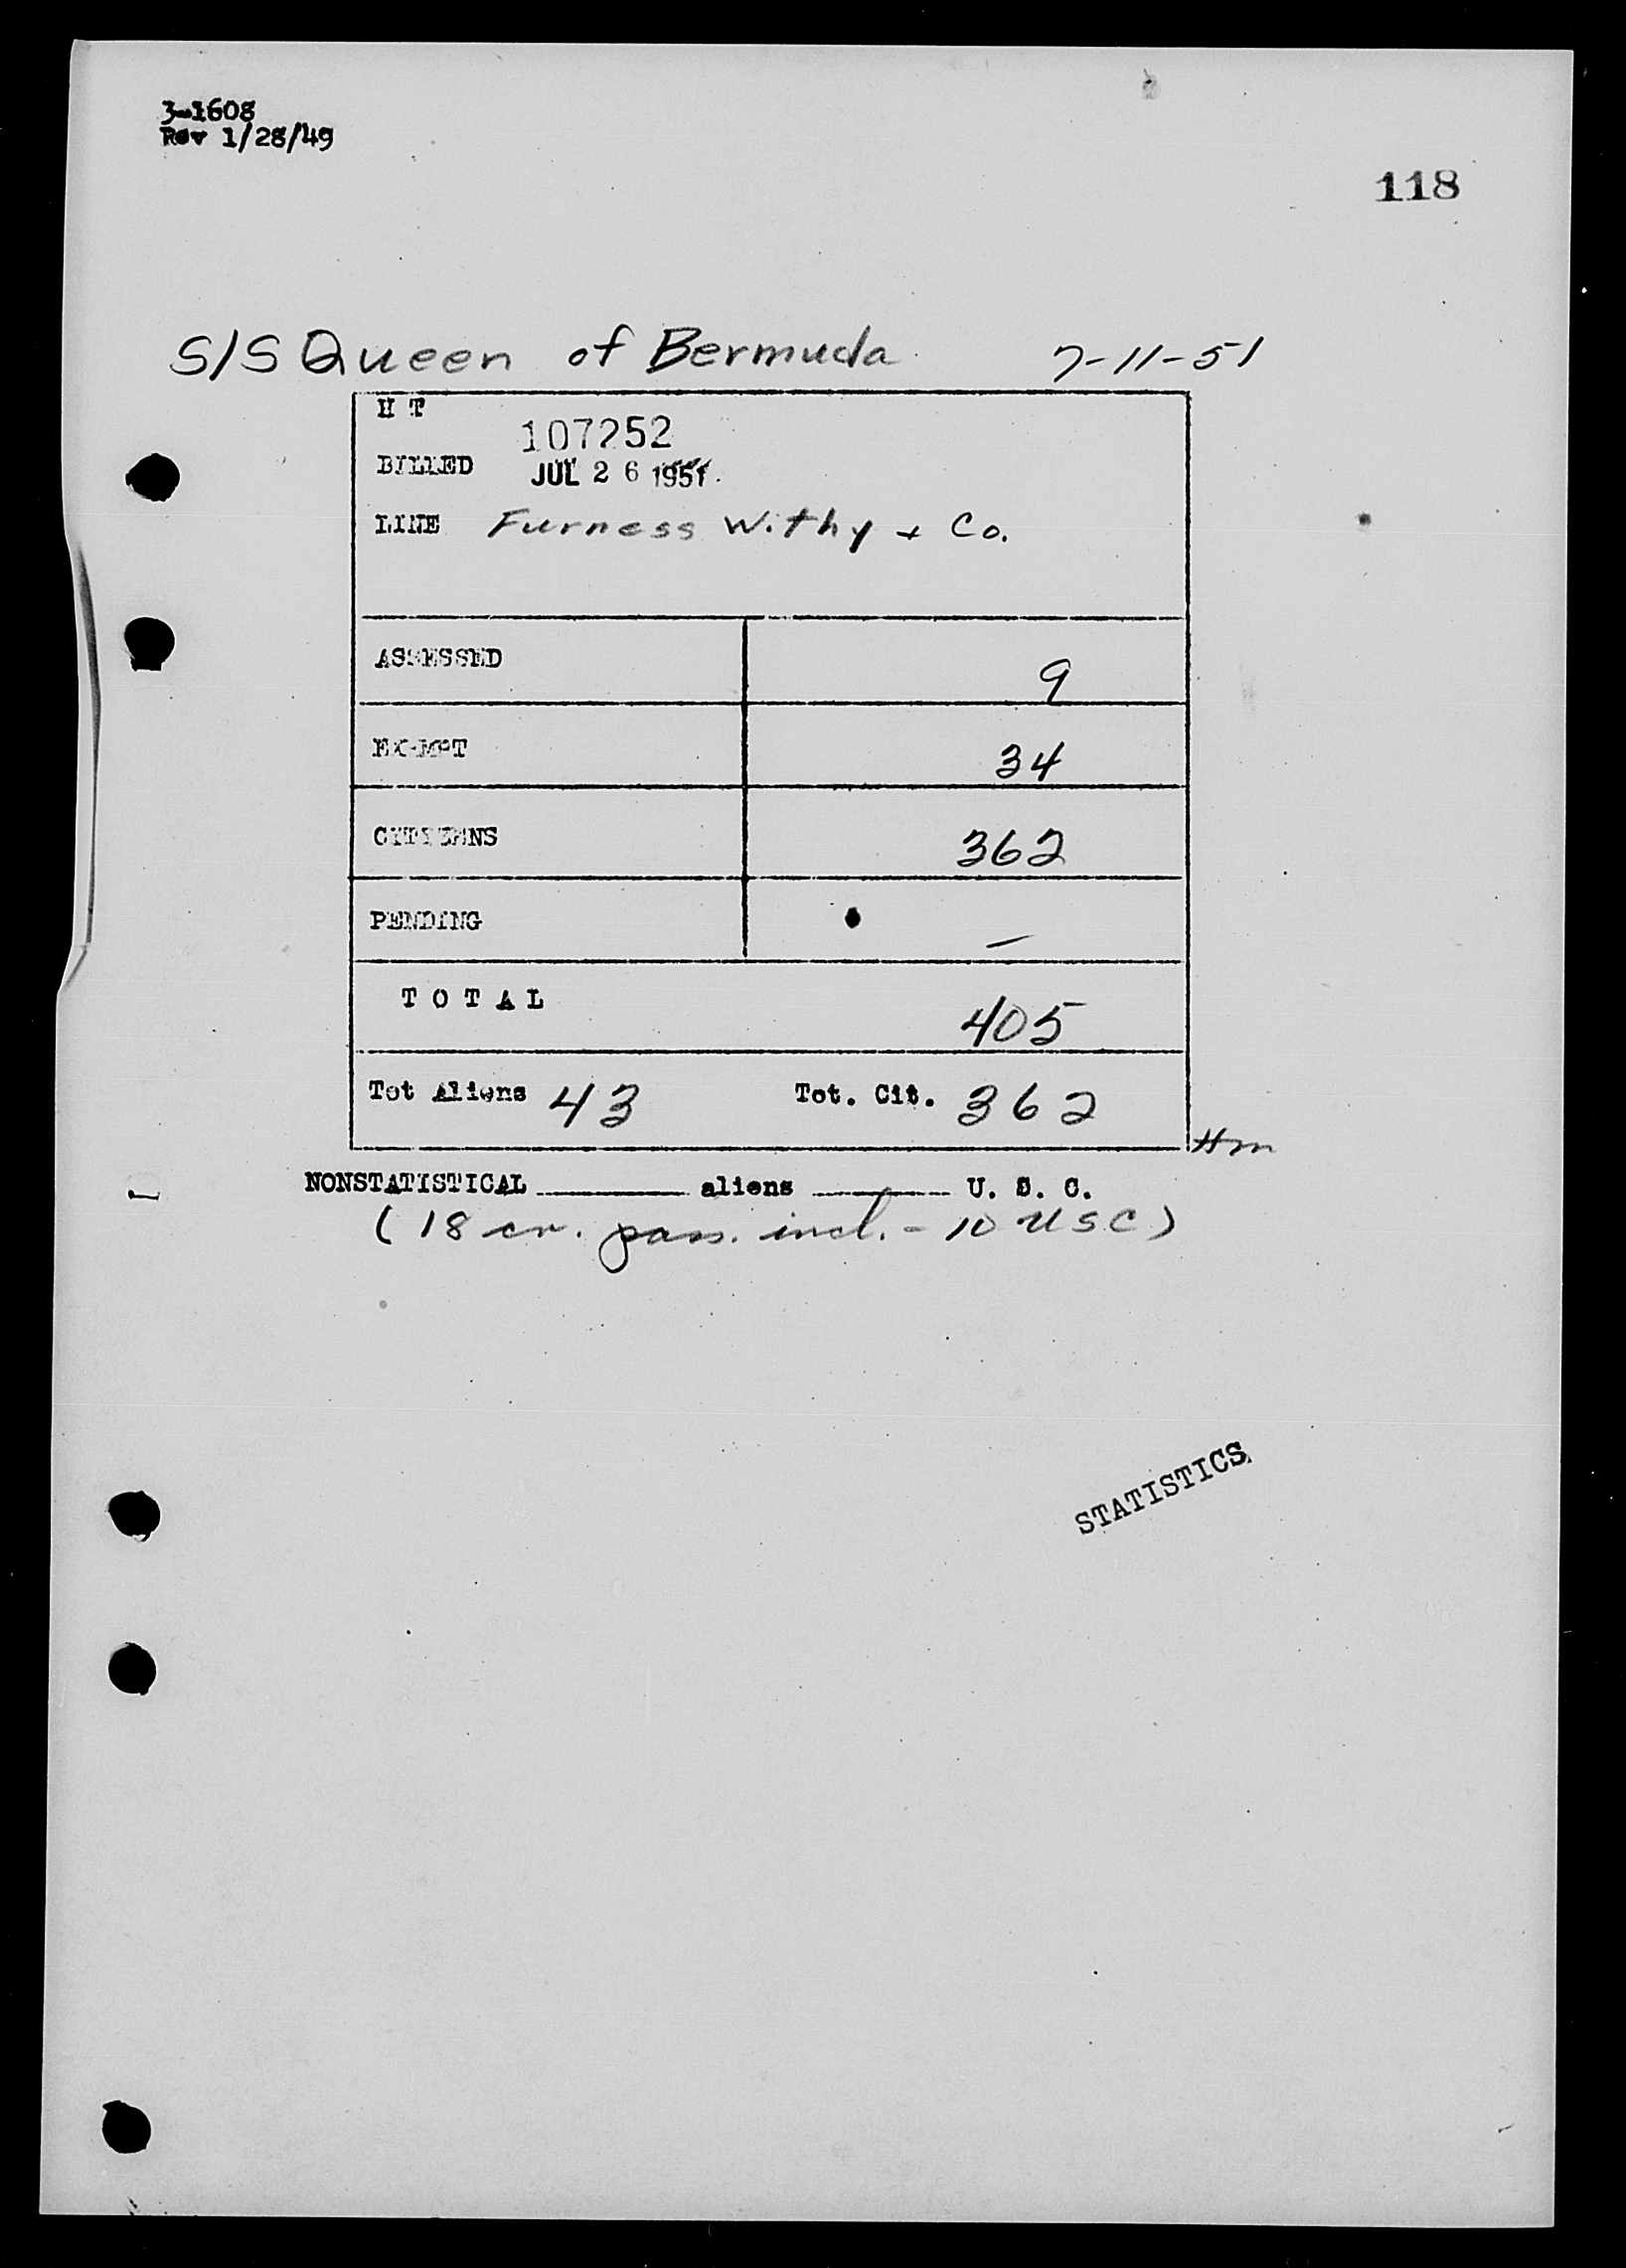 3-1608
Rev 1/28/49
118
S/S Queen of Bermuda 7-11-51
H T
107252
BILLED JUL 26 1951
LINE Furness Withy + Co.
ASSESSED 9
EXEMPT 34
CITIZENS 362
PENDING —
TOTAL 405
Tot Aliens 43 Tot. Cit. 362
Hm
NONSTATISTICAL ______ aliens ______ U. S. C.
(18 cr. pass. incl. - 10 USC)
STATISTICS